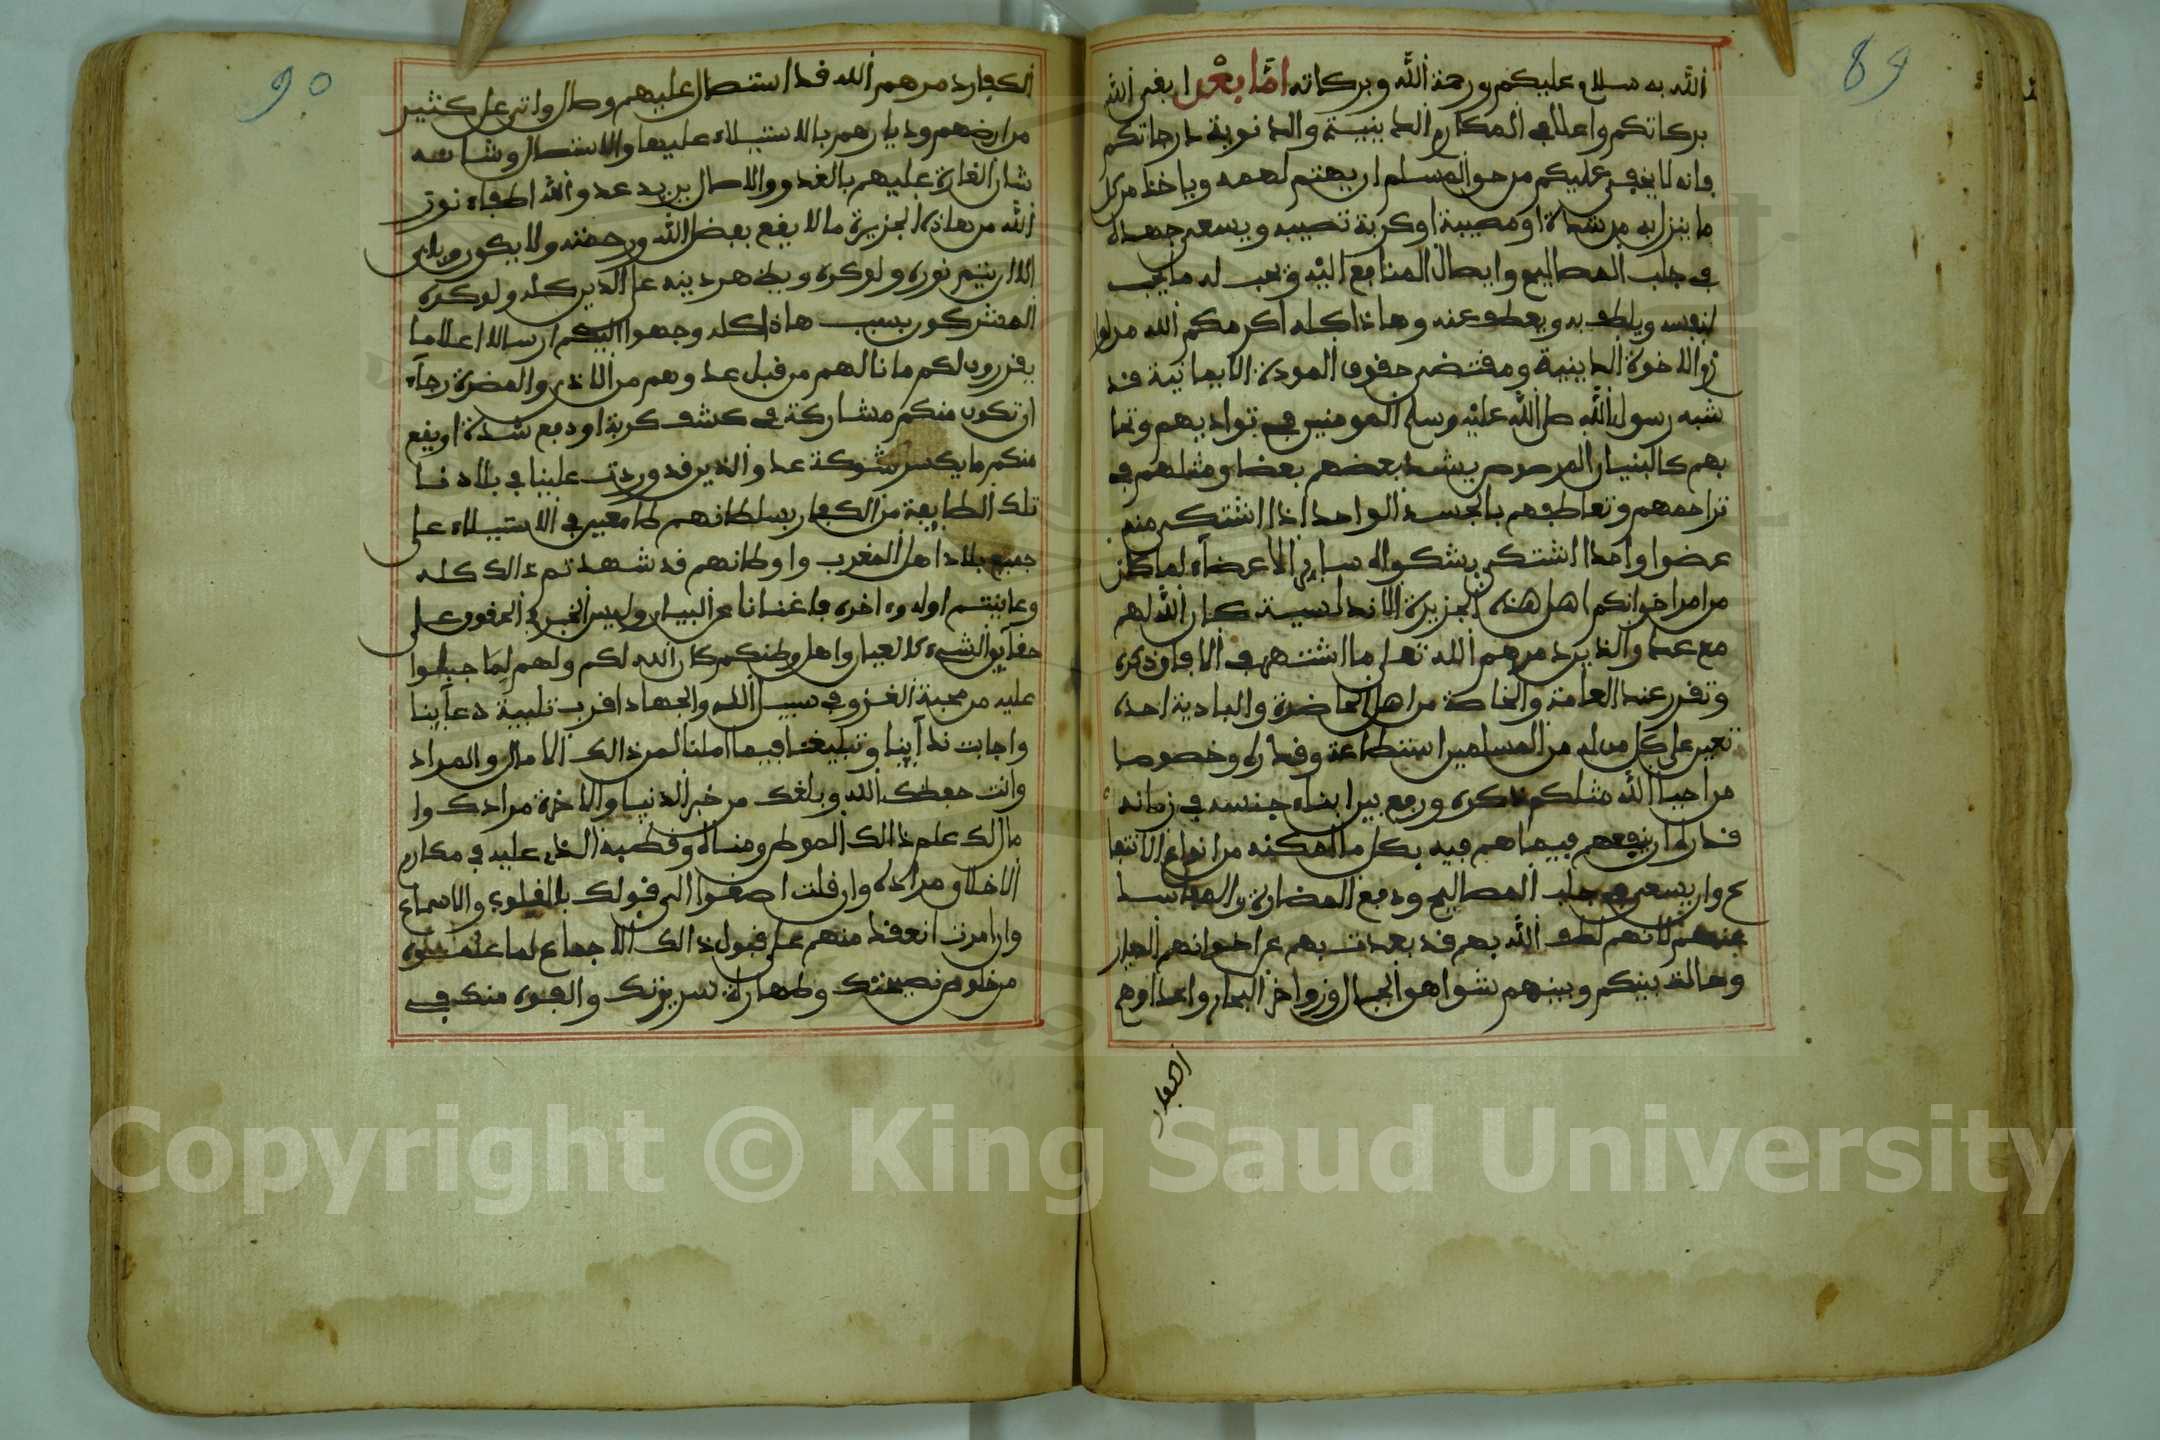 89
الله به سلام عليكم ورحمة الله وبركاته امّا بعْد ابقى الله
بركاتكم واعلا في المكارم الدينية والدنوية درجاتكم
فانه لا يخفى عليكم من حق المسلم ان يهتم لهمه وياخذ من كل
ما ينزل به من شدة او مصيبة او كربة تصيبه ويسعى جهده
في جلب المصاليح وايصال المنافع اليه ويحب له ما يحب
لنفسه ويلطف به ويعطف عنه وهاذا كله اكرمكم الله من لوا
زم الاخوة الدينية ومقتضى حقوق المودة الايمانية فقد
شبه رسول الله صلى الله عليه وسلم المومنين في تواديهم وتحا
بهم كالبنيان المرصوص يشد بعضهم بعضا ومثلهم في
تراحمهم وتعاطفهم بالجسد الواحد اذا اشتكى منه
عضوا واحدا اشتكى بشكواه ساير الاعضاء لما كان
من امر اخوانكم اهل هذه الجزيرة الاندلسية كان الله لهم
مع عدو الذين دمرهم الله تعلى ما اشتهر في الافاق ذكره
وتقرر عند العامة والخاصة من اهل الحاضرة والبادية احده
تعين على كل من له من المسلمين استطاعة وقدرة وخصوصا
من احيا الله مثلكم ذكره ورفع بين ابناء جنسه في زمانه
قدره ان ينفعهم فيما هم فيه بكل ما امكنه من انواع الانتفا
ع وان يسعى في جلب المصاليح ودفع المضارة والمفاسد
عنهم لانهم لطف الله بهم قد بعدت بهم عن اخوانهم الديار
وحالت بينكم وبينهم شواهق الجبال وزواخر البحار واعداوهم
الكفار
90
الكفار دمرهم الله قد استنصال عليهم وصال واتى على كثير
من ارضهم وديارهم بالاستيلاء عليها والاستصال وشانه
شان الغارة عليهم بالغدو والاصال يريد عدو الله اطفاء نور
الله من هاذه الجزيرة ما لا يقع بفضل الله ورحمته ولا يكون ويابى
الله الا ان يتم نوره ولو كره ويظهر دينه على الدين كله ولو كره
المشركون بسبب هاذا كله وجهوا اليكم ارسالا اعلاما
يقررون لكم ما نالهم من قبل عدوهم من الاذى والمضرة رجاء
ان تكون منكم مشاركة في كشف كربة او دفع شدة او يقع
منكم ما يكسر شوكة عدو الذين قد وردت علينا في بلادنا
تلك الطايفة من الكفار بسلطانهم طامعين في الاستيلاء على
جميع بلاد اهل المغرب واوطانهم قد شهدتم ذالك كله
وعاينتم اوله واخره فاغنانا عن البيان وليس الخبر في الحقوق على
حقايق الشيء كالعيان واهل وطنكم كان الله لكم ولهم لما جبلوا
عليه من محبة الغزو في سبيل الله والجهاد اقرب تلبية دعاينا
واجابت نداينا وتبليغنا فيما املنا من ذالك الامال والمراد
وانت حفظك الله وبلغك من خير الدنيا والاخرة مرادك وا
مالك علم ذالك الموطن ومناره وقطبه الذي عليه في مكارم
الاخلاق مداره وان قلت اصغوا الى قولك بالقلوب والاسماع
وان امرت انعقد منهم على قبول ذالك الاجماع لما علموه
من خلوص نصيحتك وطهارة سريرتك والمرجوه منك في
Copyright © King Saud University